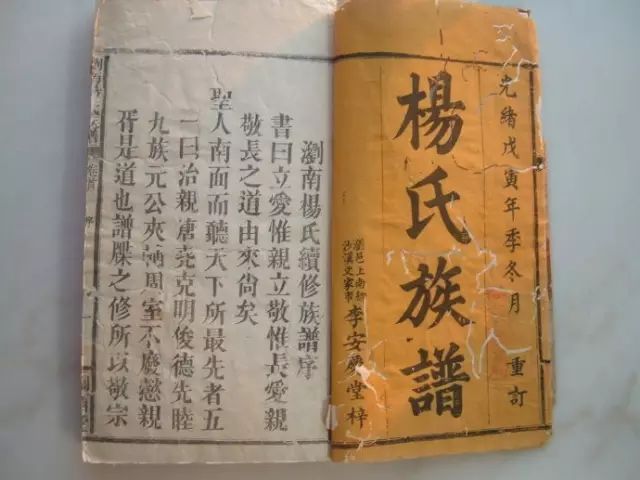 光緒戊寅年季冬月 重訂
楊氏族譜
瀏邑上南鄉
文家市
李安慶堂梓
瀏南楊氏續修族譜序
書曰立愛惟親立敬惟長愛親
敬長之道由來尙矣
聖人南面而聽天下所最先者五
一曰治親唐堯克明俊德先睦
九族元公夾輔周室不廢懿親
胥是道也譜牒之修所以敬宗
序